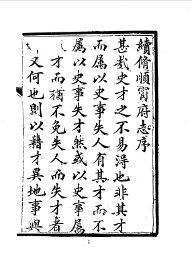 續脩順寧府志序
甚哉史才之不易得也非其才
而属以史事失人有其才而不
属以史事失才然或以史事属
才而猶不免失人而失才者
又何也則以籍才異地事與